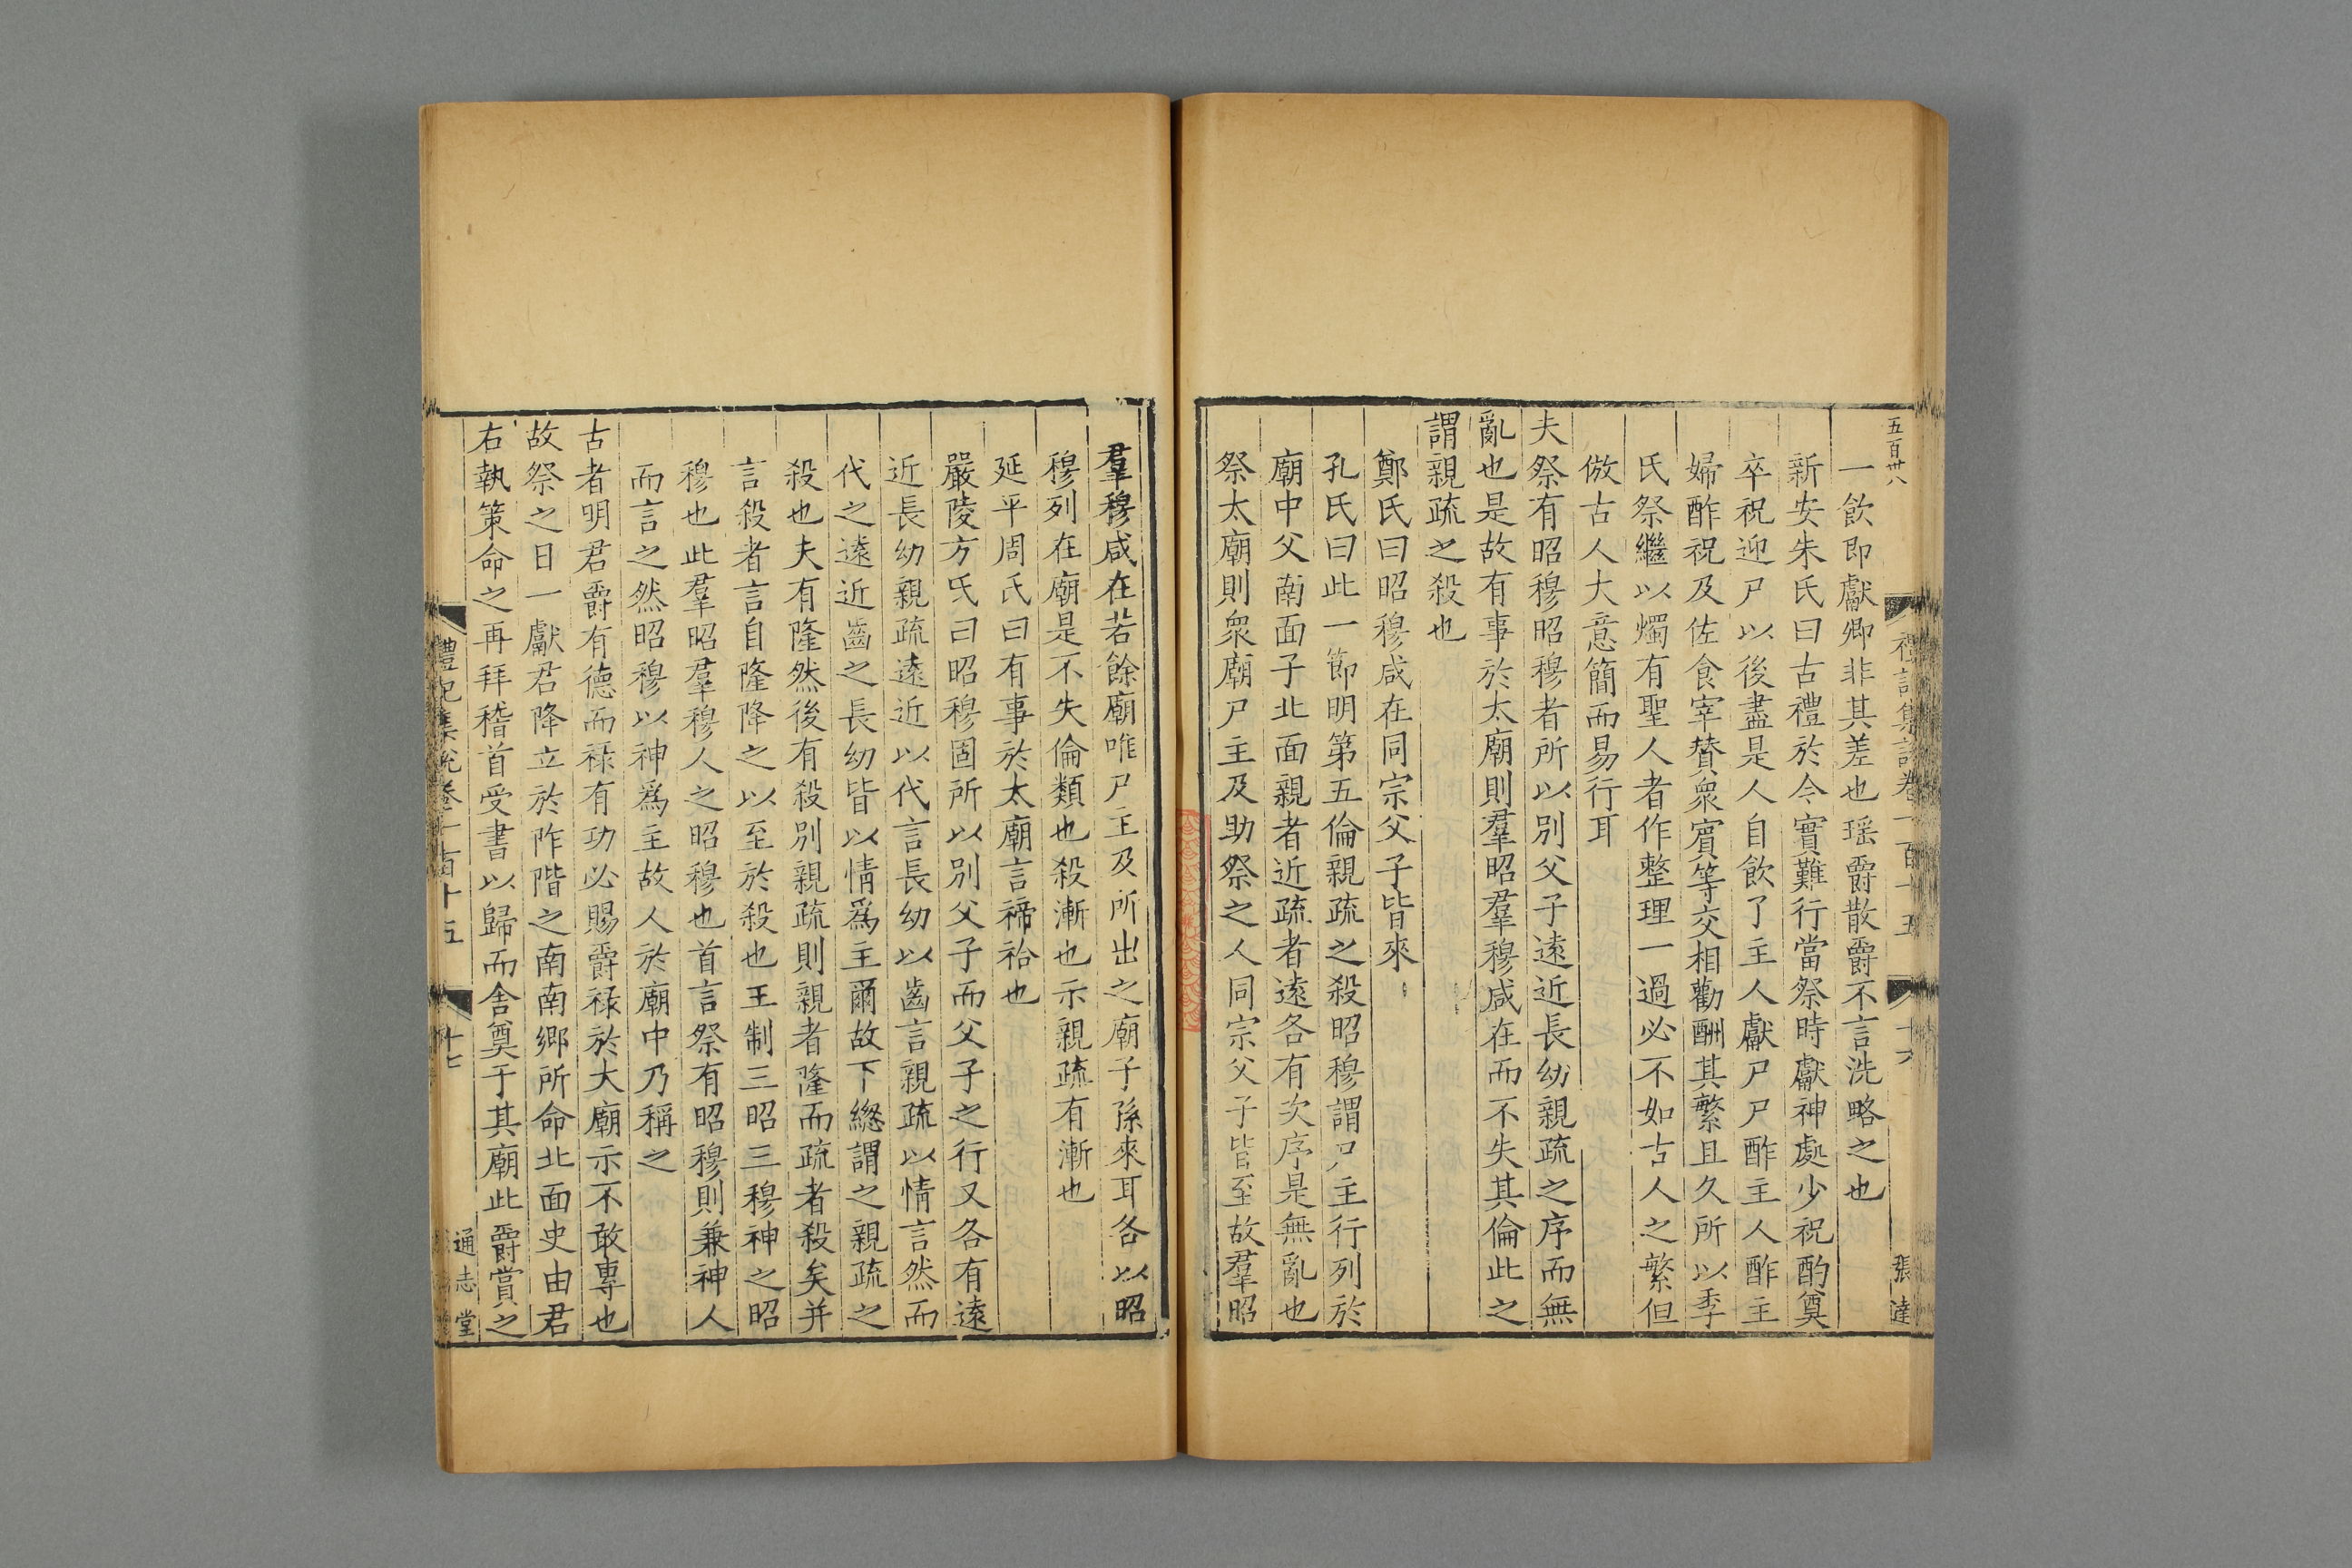 五百卅八
禮記集說卷一百十五
十六
張達
一飲即獻卿非其差也瑶爵散爵不言洗略之也
新安朱氏曰古禮於今實難行當祭時獻神處少祝酌奠
卒祝迎尸以後盡是人自飲了主人獻尸尸酢主人酢主
婦酢祝及佐食宰贊衆賓等交相勸酬其繁且久所以季
氏祭繼以燭有聖人者作整理一過必不如古人之繁但
倣古人大意簡而易行耳
夫祭有昭穆昭穆者所以別父子遠近長幼親疏之序而無
亂也是故有事於太廟則羣昭羣穆咸在而不失其倫此之
謂親疏之殺也
鄭氏曰昭穆咸在同宗父子皆來
孔氏曰此一節明第五倫親疏之殺昭穆謂尸主行列於
廟中父南面子北面親者近疏者遠各有次序是無亂也
祭太廟則衆廟尸主及助祭之人同宗父子皆至故羣昭
羣穆咸在若餘廟唯尸主及所出之廟子孫來耳各以昭
穆列在廟是不失倫類也殺漸也示親疏有漸也
延平周氏曰有事於太廟言禘祫也
嚴陵方氏曰昭穆固所以別父子而父子之行又各有遠
近長幼親疏遠近以代言長幼以齒言親疏以情言然而
代之遠近齒之長幼皆以情爲主爾故下緫謂之親疏之
殺也夫有隆然後有殺別親疏則親者隆而疏者殺矣并
言殺者言自隆降之以至於殺也王制三昭三穆神之昭
穆也此羣昭羣穆人之昭穆也首言祭有昭穆則兼神人
而言之然昭穆以神爲主故人於廟中乃稱之
古者明君爵有德而祿有功必賜爵祿於大廟示不敢專也
故祭之日一獻君降立於阼階之南南鄉所命北面史由君
右執策命之再拜稽首受書以歸而舍奠于其廟此爵賞之
禮記集說卷一百十五
十七
通志堂